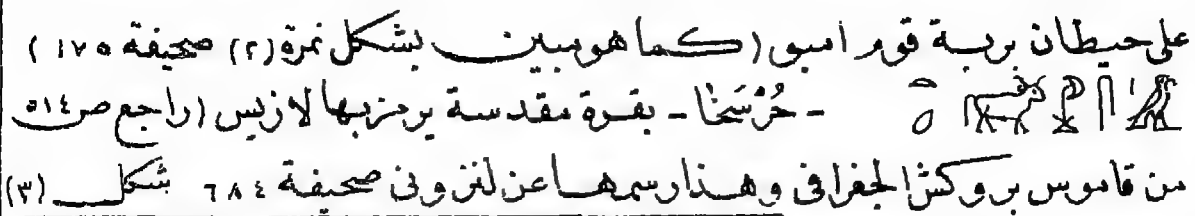 على حيطان بربة قوم امبو (كما هو مبين بشكل نمرة (٢) صحيفة ١٧٥ )
- حُرْسَخَا - بقرة مقدسة يرمز بها لازيس (راجع ص ٥١٤
من قاموس بروكش الجغرافى وهذا رسمها عن لنزونى صحيفة ٦٨٤ شكل (٣)